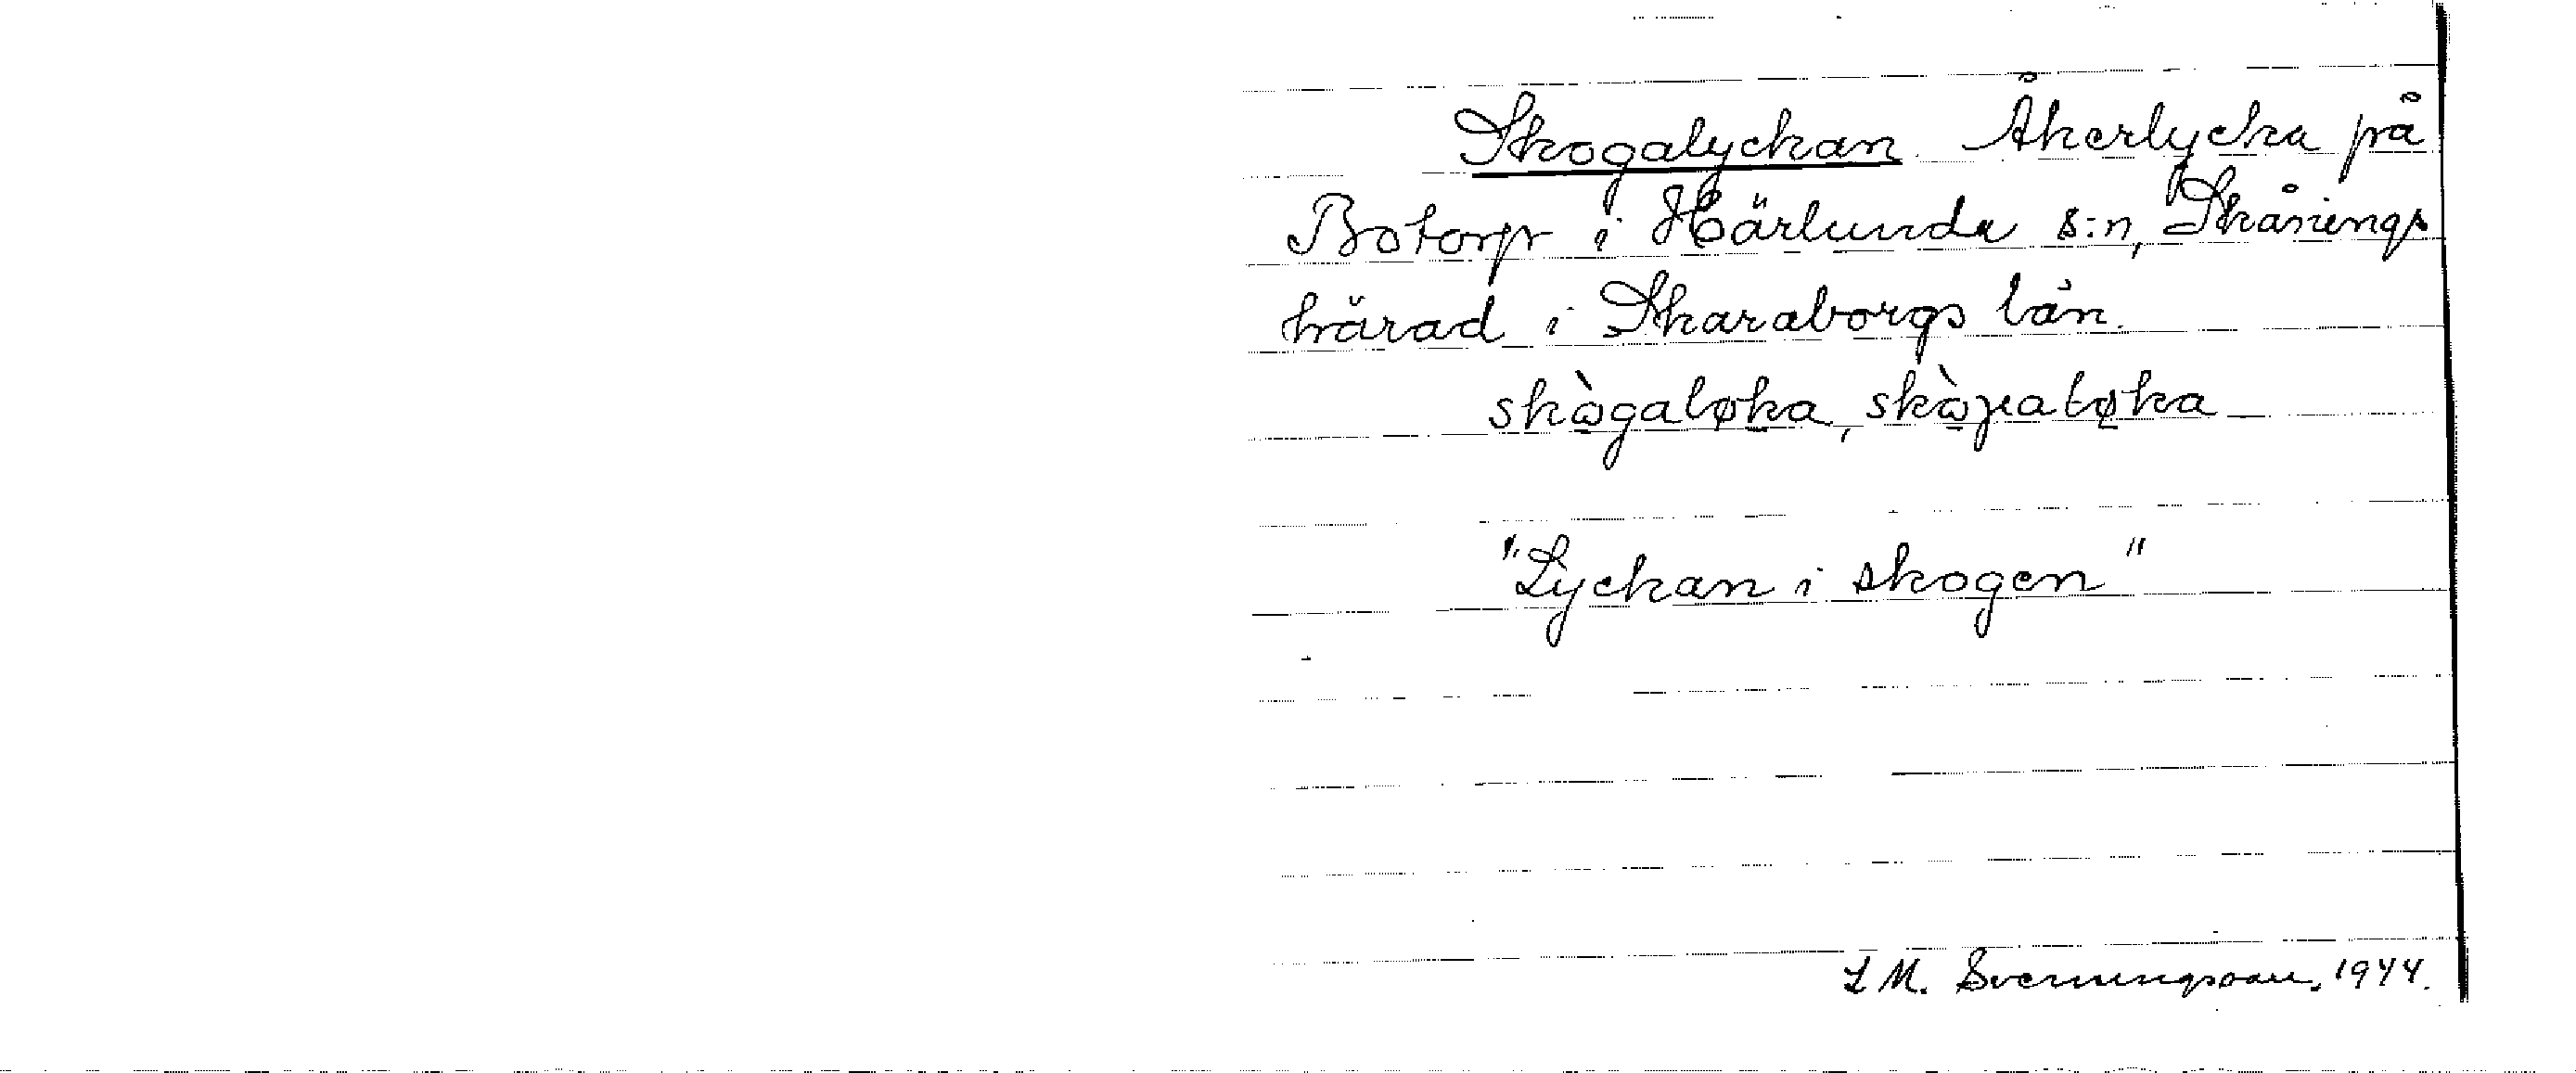 Skogalyckan. Åkerlycka på
Botorp i Härlunda s:n, Skånings
härad i Skaraborgs län.
skògaløka, skòɣaløka
"Lyckan i skogen"
L M. Svenungsson, 1944.